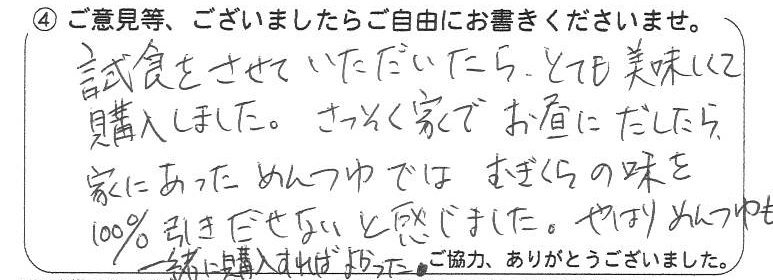 ④ ご意見等、ございましたらご自由にお書きくださいませ。
試食をさせていただいたら、とても美味しくて
購入しました。さっそく家でお昼にだしたら、
家にあっためんつゆでは むぎくらの味を
100% 引きだせないと感じました。やはりめんつゆも
一緒に購入すればよかった。
ご協力、ありがとうございました。